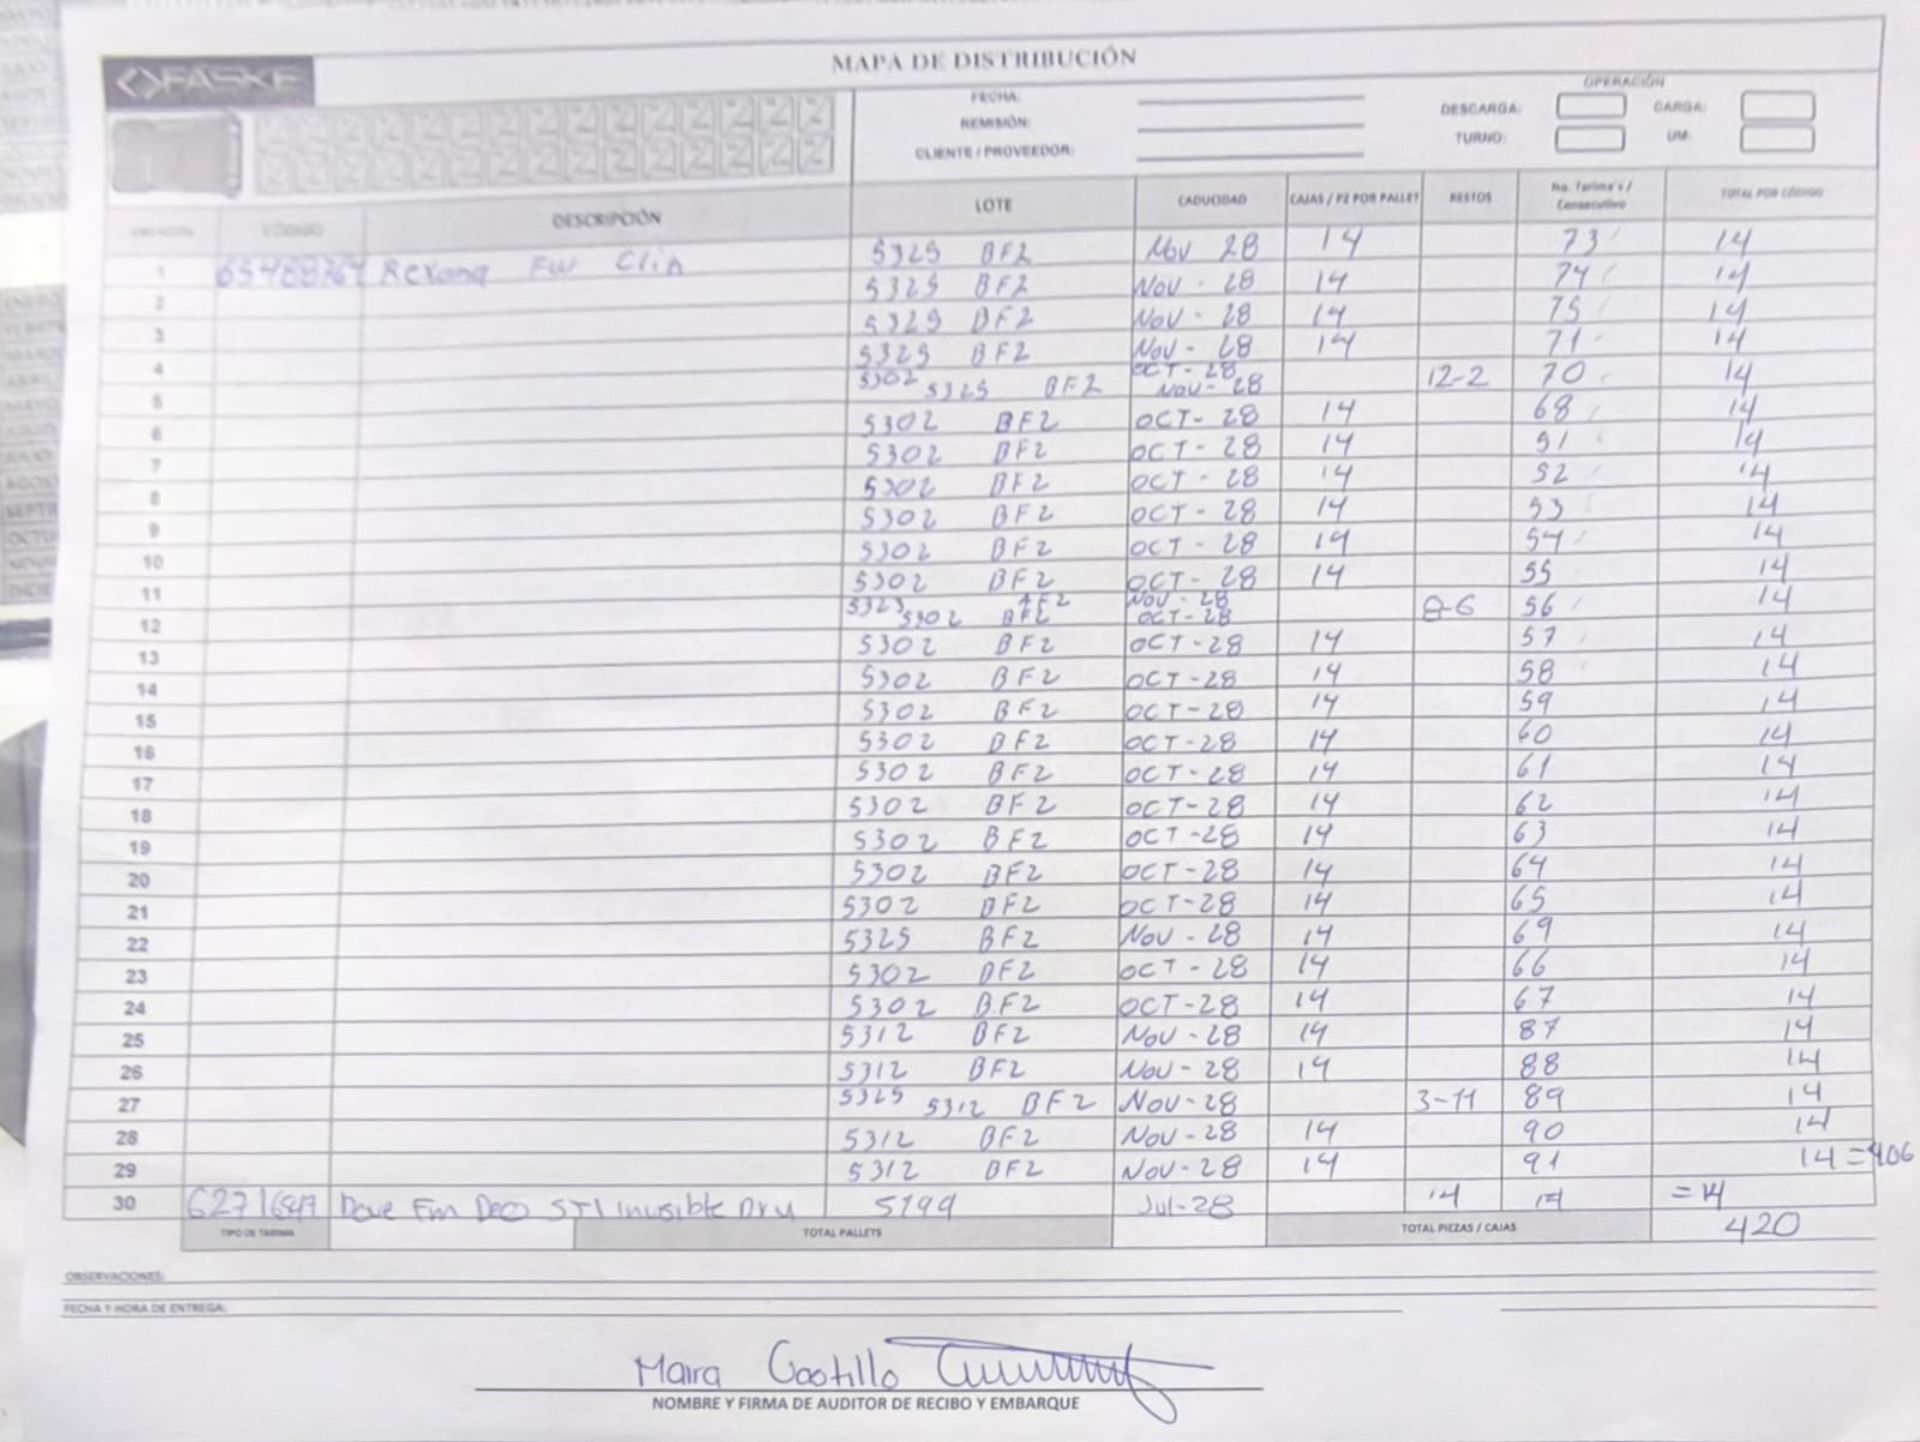 MAPA DE DISTRIBUCIÓN
FASKE
OPERACIÓN
FECHA:
DESCARGA: CARGA:
REMISIÓN:
TURNO: UM:
CLIENTE / PROVEEDOR:
CÓDIGO DESCRIPCIÓN LOTE CADUCIDAD CAJAS / PZ POR PALLET RESTOS No. Tarima's / Consecutivo TOTAL POR CÓDIGO
1 Rexona FW Clin 5325 BF2 Nov 28 14 73 14
2 5325 BF2 Nov - 28 14 74 14
3 5325 BF2 Nov - 28 14 75 14
4 5325 BF2 Nov - 28 14 71 14
5 5302 5325 BF2 OCT - 28 Nov - 28 12-2 70 14
6 5302 BF2 OCT - 28 14 68 14
7 5302 BF2 OCT - 28 14 51 14
8 5302 BF2 OCT - 28 14 52 14
9 5302 BF2 OCT - 28 14 53 14
10 5302 BF2 OCT - 28 14 54 14
11 5302 BF2 OCT - 28 14 55 14
12 5302 BF2 Nov - 28 OCT - 28 8-6 56 14
13 5302 BF2 OCT - 28 14 57 14
14 5302 BF2 OCT - 28 14 58 14
15 5302 BF2 OCT - 28 14 59 14
16 5302 BF2 OCT - 28 14 60 14
17 5302 BF2 OCT - 28 14 61 14
18 5302 BF2 OCT - 28 14 62 14
19 5302 BF2 OCT - 28 14 63 14
20 5302 BF2 OCT - 28 14 64 14
21 5302 BF2 OCT - 28 14 65 14
22 5325 BF2 Nov - 28 14 69 14
23 5302 BF2 OCT - 28 14 66 14
24 5302 BF2 OCT - 28 14 67 14
25 5312 BF2 Nov - 28 14 87 14
26 5312 BF2 Nov - 28 14 88 14
27 5325 5312 BF2 Nov - 28 3-11 89 14
28 5312 BF2 Nov - 28 14 90 14
29 5312 BF2 Nov - 28 14 91 14 = 406
30 Dove Fm Deo STI Invisible Dry 5199 Jul - 28 14 = 14
TIPO DE TARIMA TOTAL PALLETS TOTAL PIEZAS / CAJAS 420
OBSERVACIONES:
FECHA Y HORA DE ENTREGA:
Maira Castillo
NOMBRE Y FIRMA DE AUDITOR DE RECIBO Y EMBARQUE